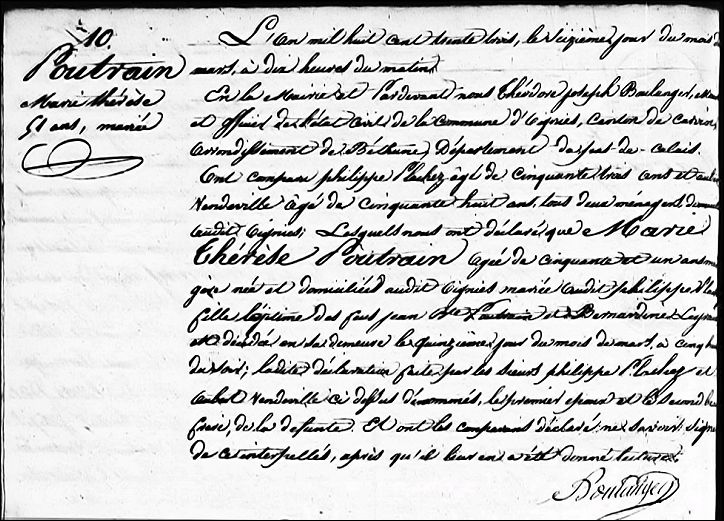 N° 10.
Poutrain
Marie thérèse
51 ans, mariée
L'An mil huit cent trente trois, le seizième jour du mois d
mars, à dix heures du matin
En la Mairie et Pardevant nous Théodore joseph Boulanger, Mai
et officier de l'état Civil de la Commune d'Oignies, Canton de Carvin
Arrondissement de Béthune, Département du pas-de-Calais.
Ont comparu philippe Plachez âgé de Cinquante trois ans et aubert
Vendeville âgé de Cinquante huit ans, tous deux ménagers, demeurant
audit Oignies; Lesquels nous ont déclaré, que Marie
Thérèse Poutrain âgée de Cinquante et un ans mena
gère née et domiciliée audit Oignies mariée audit philippe Plac
fille légitime des feus jean Bte Poutrain et Bernardine
est décédée en sa demeure le quinzième jour du mois de mars, à cinq heu
du soir; ladite déclaration faite par les sieurs philippe Plachez et
aubert Vendeville ci dessus dénommés, le premier epoux et le second beau
frère, de la defunte Et ont les comparans déclaré ne savoir signer
de ce interpellés, après qu'il leur en a été donné lecture.
Boulanger